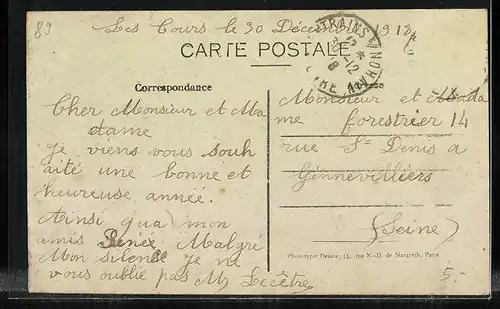 89
Les Cours le 30 Décembre 1918
CARTE POSTALE
Correspondance
Cher Monsieur et Ma
dame
Je viens vous souh
aité une bonne et
heureuse année.
Ainsi qua mon
amis Renée, Malgré
Mon silence je ne
vous oublie pas M Lecêtre
Monsieur et Mada
me forestrier 14
rue St Denis a
Génnevilliers
(Seine)
Phototypie Desaix, 11, rue N.-D. de Nazareth, Paris
5-